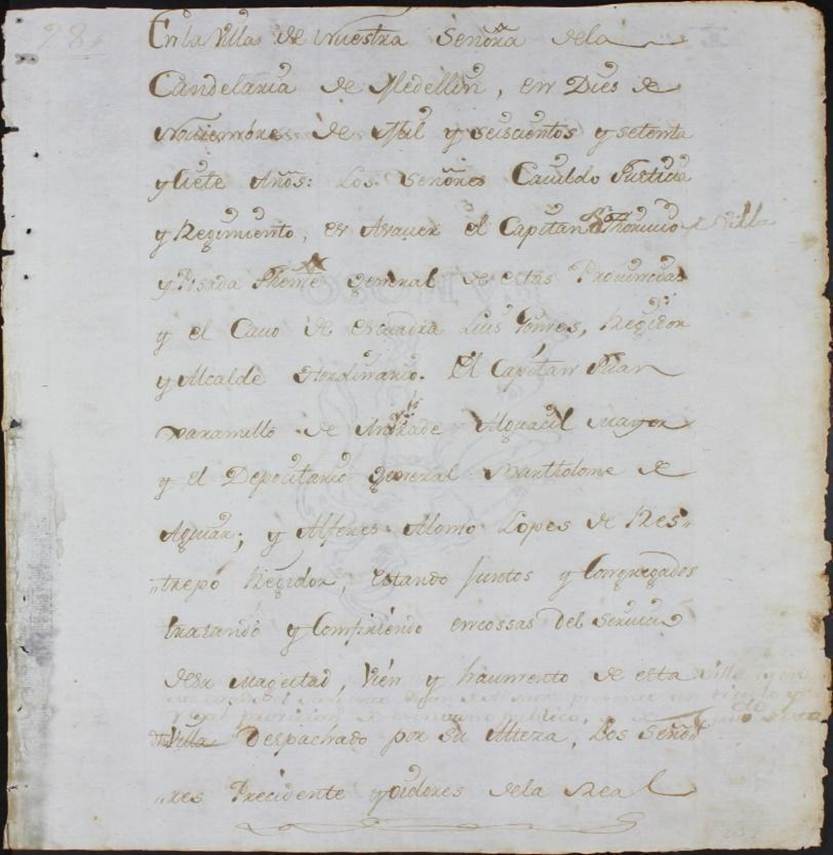 98
En la Villa de Nuestra Señora dela
Candelaria de Medellin, en Dies de
Noviembre de Mil y seiscientos y setenta
y siete Años: Los Señores Cavildo Justicia
y Regimiento, es Asauer el Capitan Villa
y Posada General de estas Provincias
y el Cauo de escuadra Luis Gomes, Regidor
y Alcalde Hordinario. El Capitan Juan
Xaramillo de Andrade Alguacil Mayor
y el Depocitario General Bartholome de
Aguiar; y Alferes Alonso Lopes de Res-
trepo Regidor, estando Juntos y Congregados
tratando y Confiriendo en cossas del seruicio
desu Magestad, Vien y haumento de esta Villa
Villa Despachado por Su Alteza, Los Seño-
res Precidente y oidores dela Real